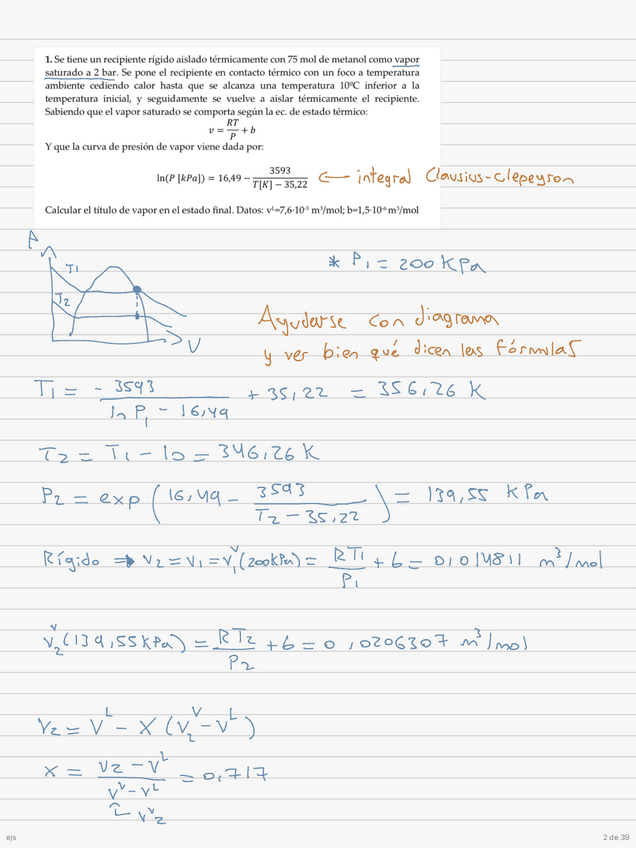 1. Se tiene un recipiente rígido aislado térmicamente con 75 mol de metanol como vapor
saturado a 2 bar. Se pone el recipiente en contacto térmico con un foco a temperatura
ambiente cediendo calor hasta que se alcanza una temperatura 10ºC inferior a la
temperatura inicial, y seguidamente se vuelve a aislar térmicamente el recipiente.
Sabiendo que el vapor saturado se comporta según la ec. de estado térmico:
v = RT/P + b
Y que la curva de presión de vapor viene dada por:
ln(P [kPa]) = 16,49 − 3593/(T[K] − 35,22) ← integral Clausius-Clepeyron
Calcular el título de vapor en el estado final. Datos: vᴸ=7,6·10⁻⁵ m³/mol; b=1,5·10⁻⁶ m³/mol
P
T1
T2
V
* P1 = 200 KPa
Ayudarse con diagrama
y ver bien qué dicen las fórmulas
T1 = -3593/(ln P1 - 16,49) + 35,22 = 356,26 K
T2 = T1 - 10 = 346,26 K
P2 = exp (16,49 - 3593/(T2 - 35,22)) = 139,55 KPa
Rígido ⇒ v2 = v1 = v1ⱽ(200kPa) = RT1/P1 + b = 0,014811 m³/mol
v2ⱽ(139,55kPa) = RT2/P2 + b = 0,0206307 m³/mol
V2 = Vᴸ - X (V2ⱽ - Vᴸ)
X = (V2 - Vᴸ)/(Vⱽ - Vᴸ) = 0,717
↳ Vⱽ2
ejs
2 de 39